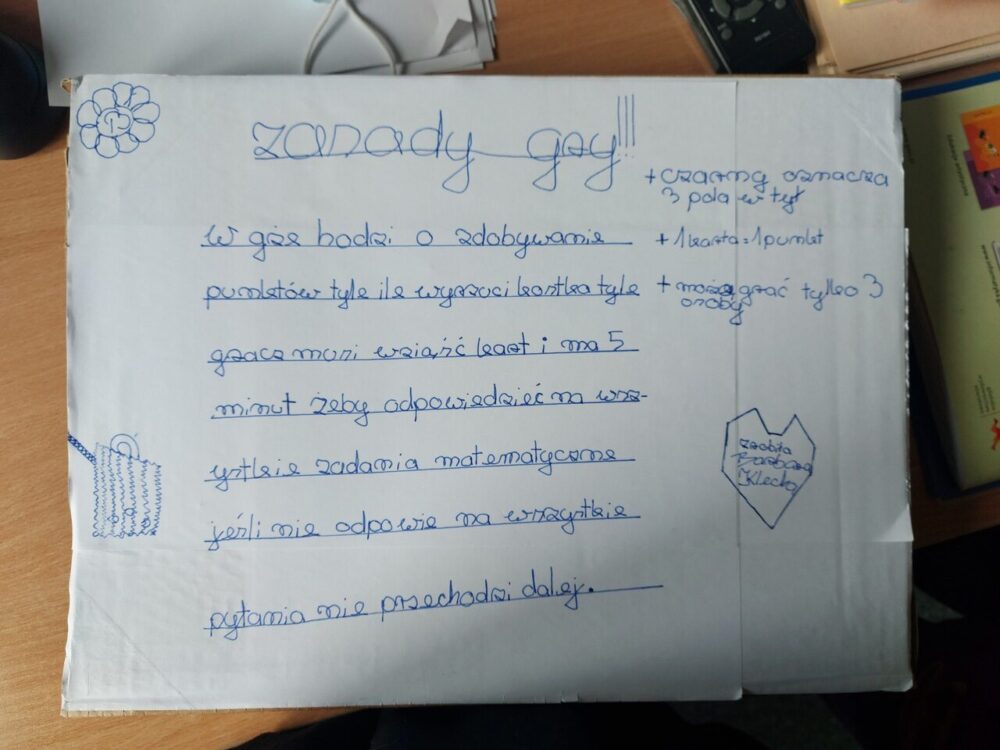 zasady gry!!!
+ czarny oznacza
3 pola w tył
W grze hodzi o zdobywanie
+ 1 karta = 1 punkt
punktów tyle ile wyrzuci kostka tyle
+ może grać tylko 3
osoby
gracz musi wziąść kart i ma 5
minut żeby odpowiedzieć na wsz-
ystkie zadania matematyczne
jeśli nie odpowie na wszystkie
pytania nie przechodzi dalej.
zrobiła
Klecka